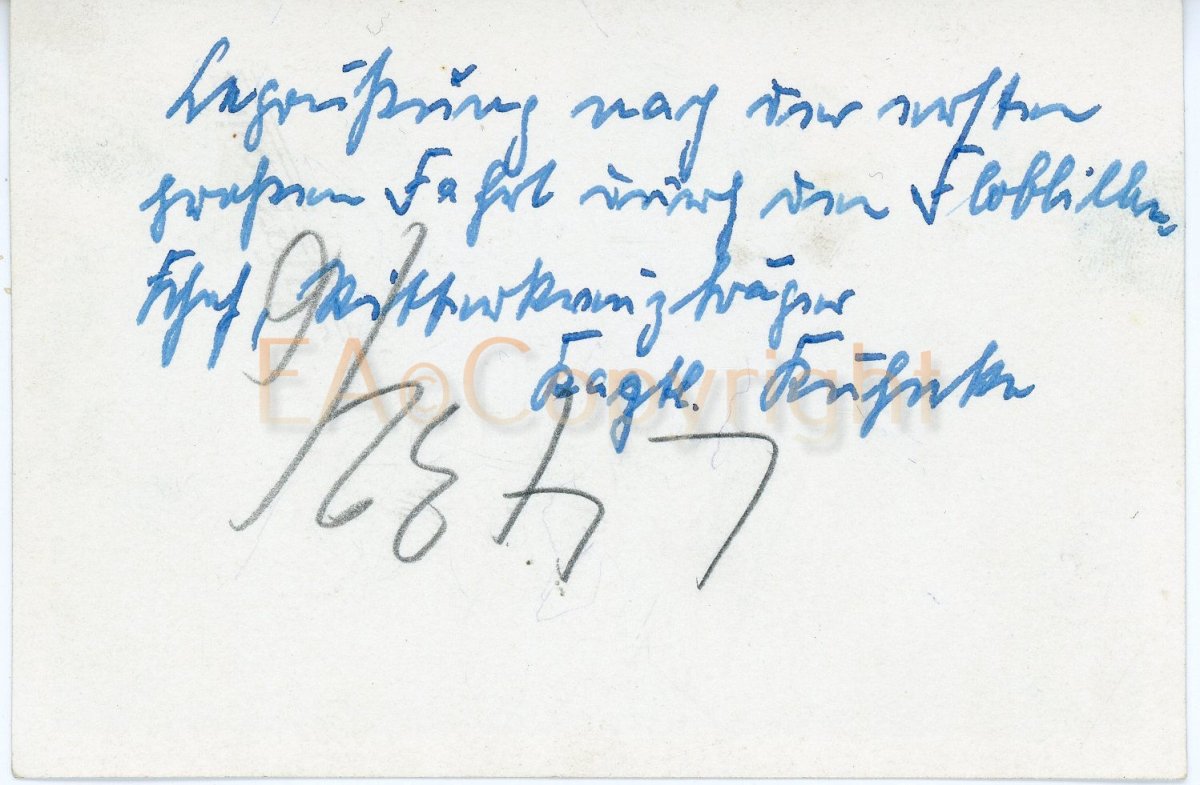 Begrüßung nach der ersten
großen Fahrt durch den Flottillen-
Chef, Ritterkreuzträger
EA©Copyright
Kaptl. Kuhnke